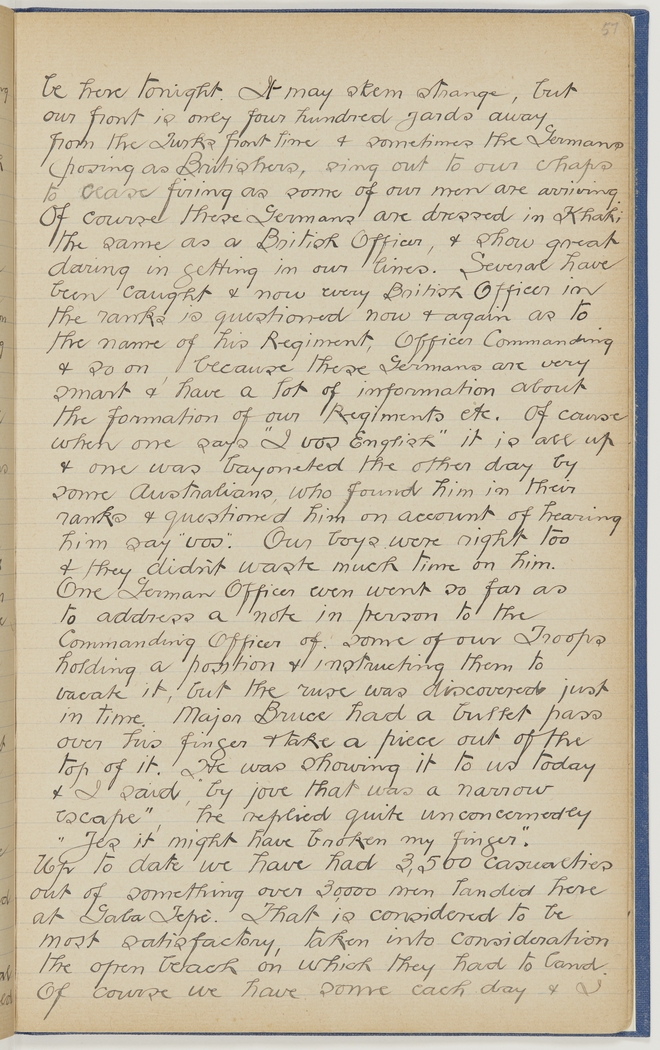 57
be here tonight. It may skem strange, but
our front is only four hundred yards away
from the Turks front line & sometimes the Germans
(posing as Britishers, sing out to our chaps
to cease firing as some of our men are arriving.
Of course these Germans are dressed in Khaki
the same as a British Officer, & show great
daring in getting in our lines. Several have
been caught & now every British Officer in
the ranks is questioned now & again as to
the name of his Regiment, Officer Commanding
& so on because these Germans are very
smart & have a lot of information about
the formation of our Regiments etc. Of course
when one says "I vos English" it is all up
& one was bayoneted the other day by
some Australians, who found him in their
ranks & questioned him on account of hearing
him say "vos". Our boys were right too
& they didn't waste much time on him.
One German Officer even went so far as
to address a note in person to the
Commanding Officer of. some of our Troops
holding a position & instructing them to
vacate it, but the ruse was discovered just
in time. Major Bruce had a bullet pass
over his finger & take a piece out of the
top of it. He was showing it to us today
& I said, "by jove that was a narrow
escape", he replied quite unconcernedly
"Yes it might have broken my finger".
Up to date we have had 3,500 casualties
out of something over 30000 men landed here
at Gaba Tepe. That is considered to be
most satisfactory, taken into consideration
the open beach on which they had to land.
Of course we have some each day & I